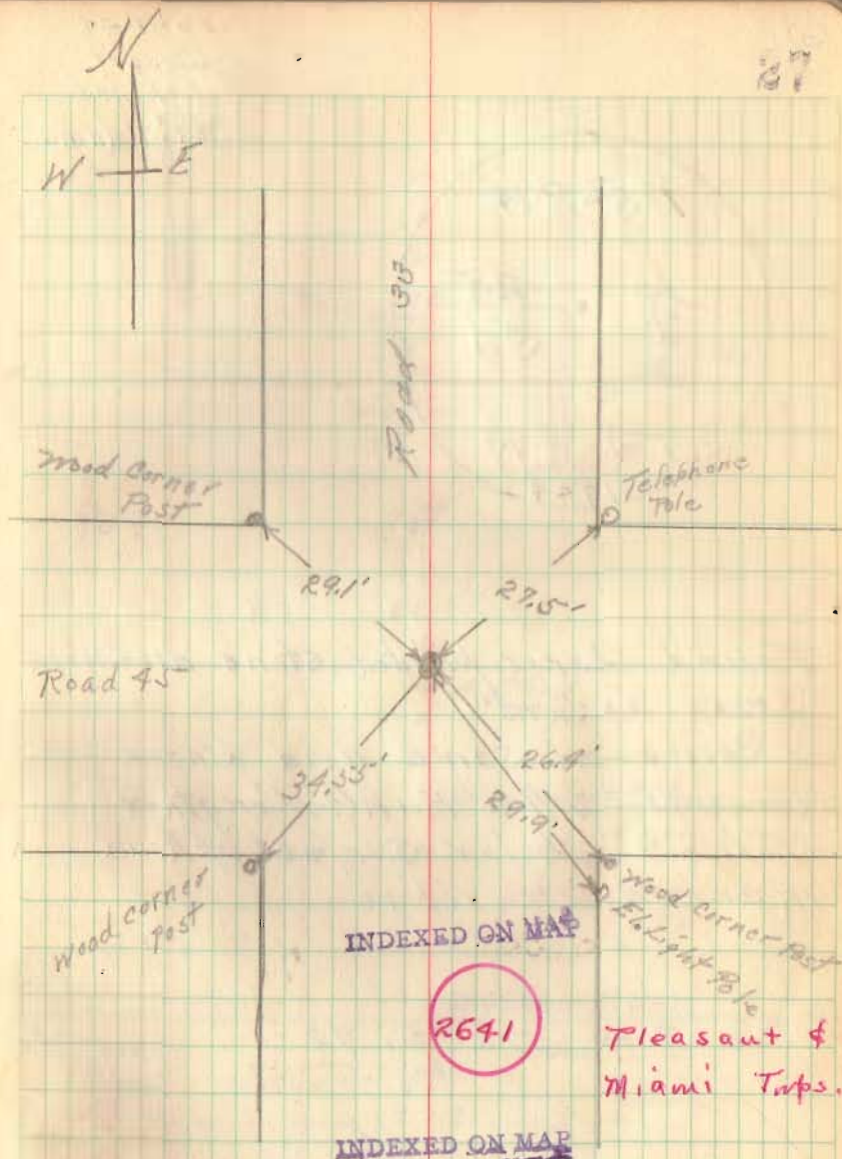 N
27
W E
Road 33
Wood Corner
Post
Telephone
Pole
29.1'
27.5'
Road 45
26.4'
34.55'
29.9'
Wood Corner
Post
Wood Corner Post
El. Light Pole
INDEXED ON MAP
2641
Pleasant &
Miami Twps.
INDEXED ON MAP